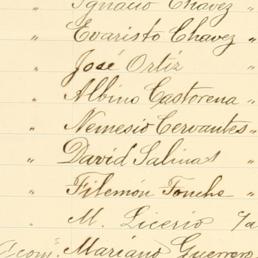 Ignacio Chavez "
" Evaristo Chavez "
" José Ortíz "
" Albino Castorena "
" Nemesio Cervantes "
" David Salinas "
" Filemón
" M. Licerio
Mariano Guerrero